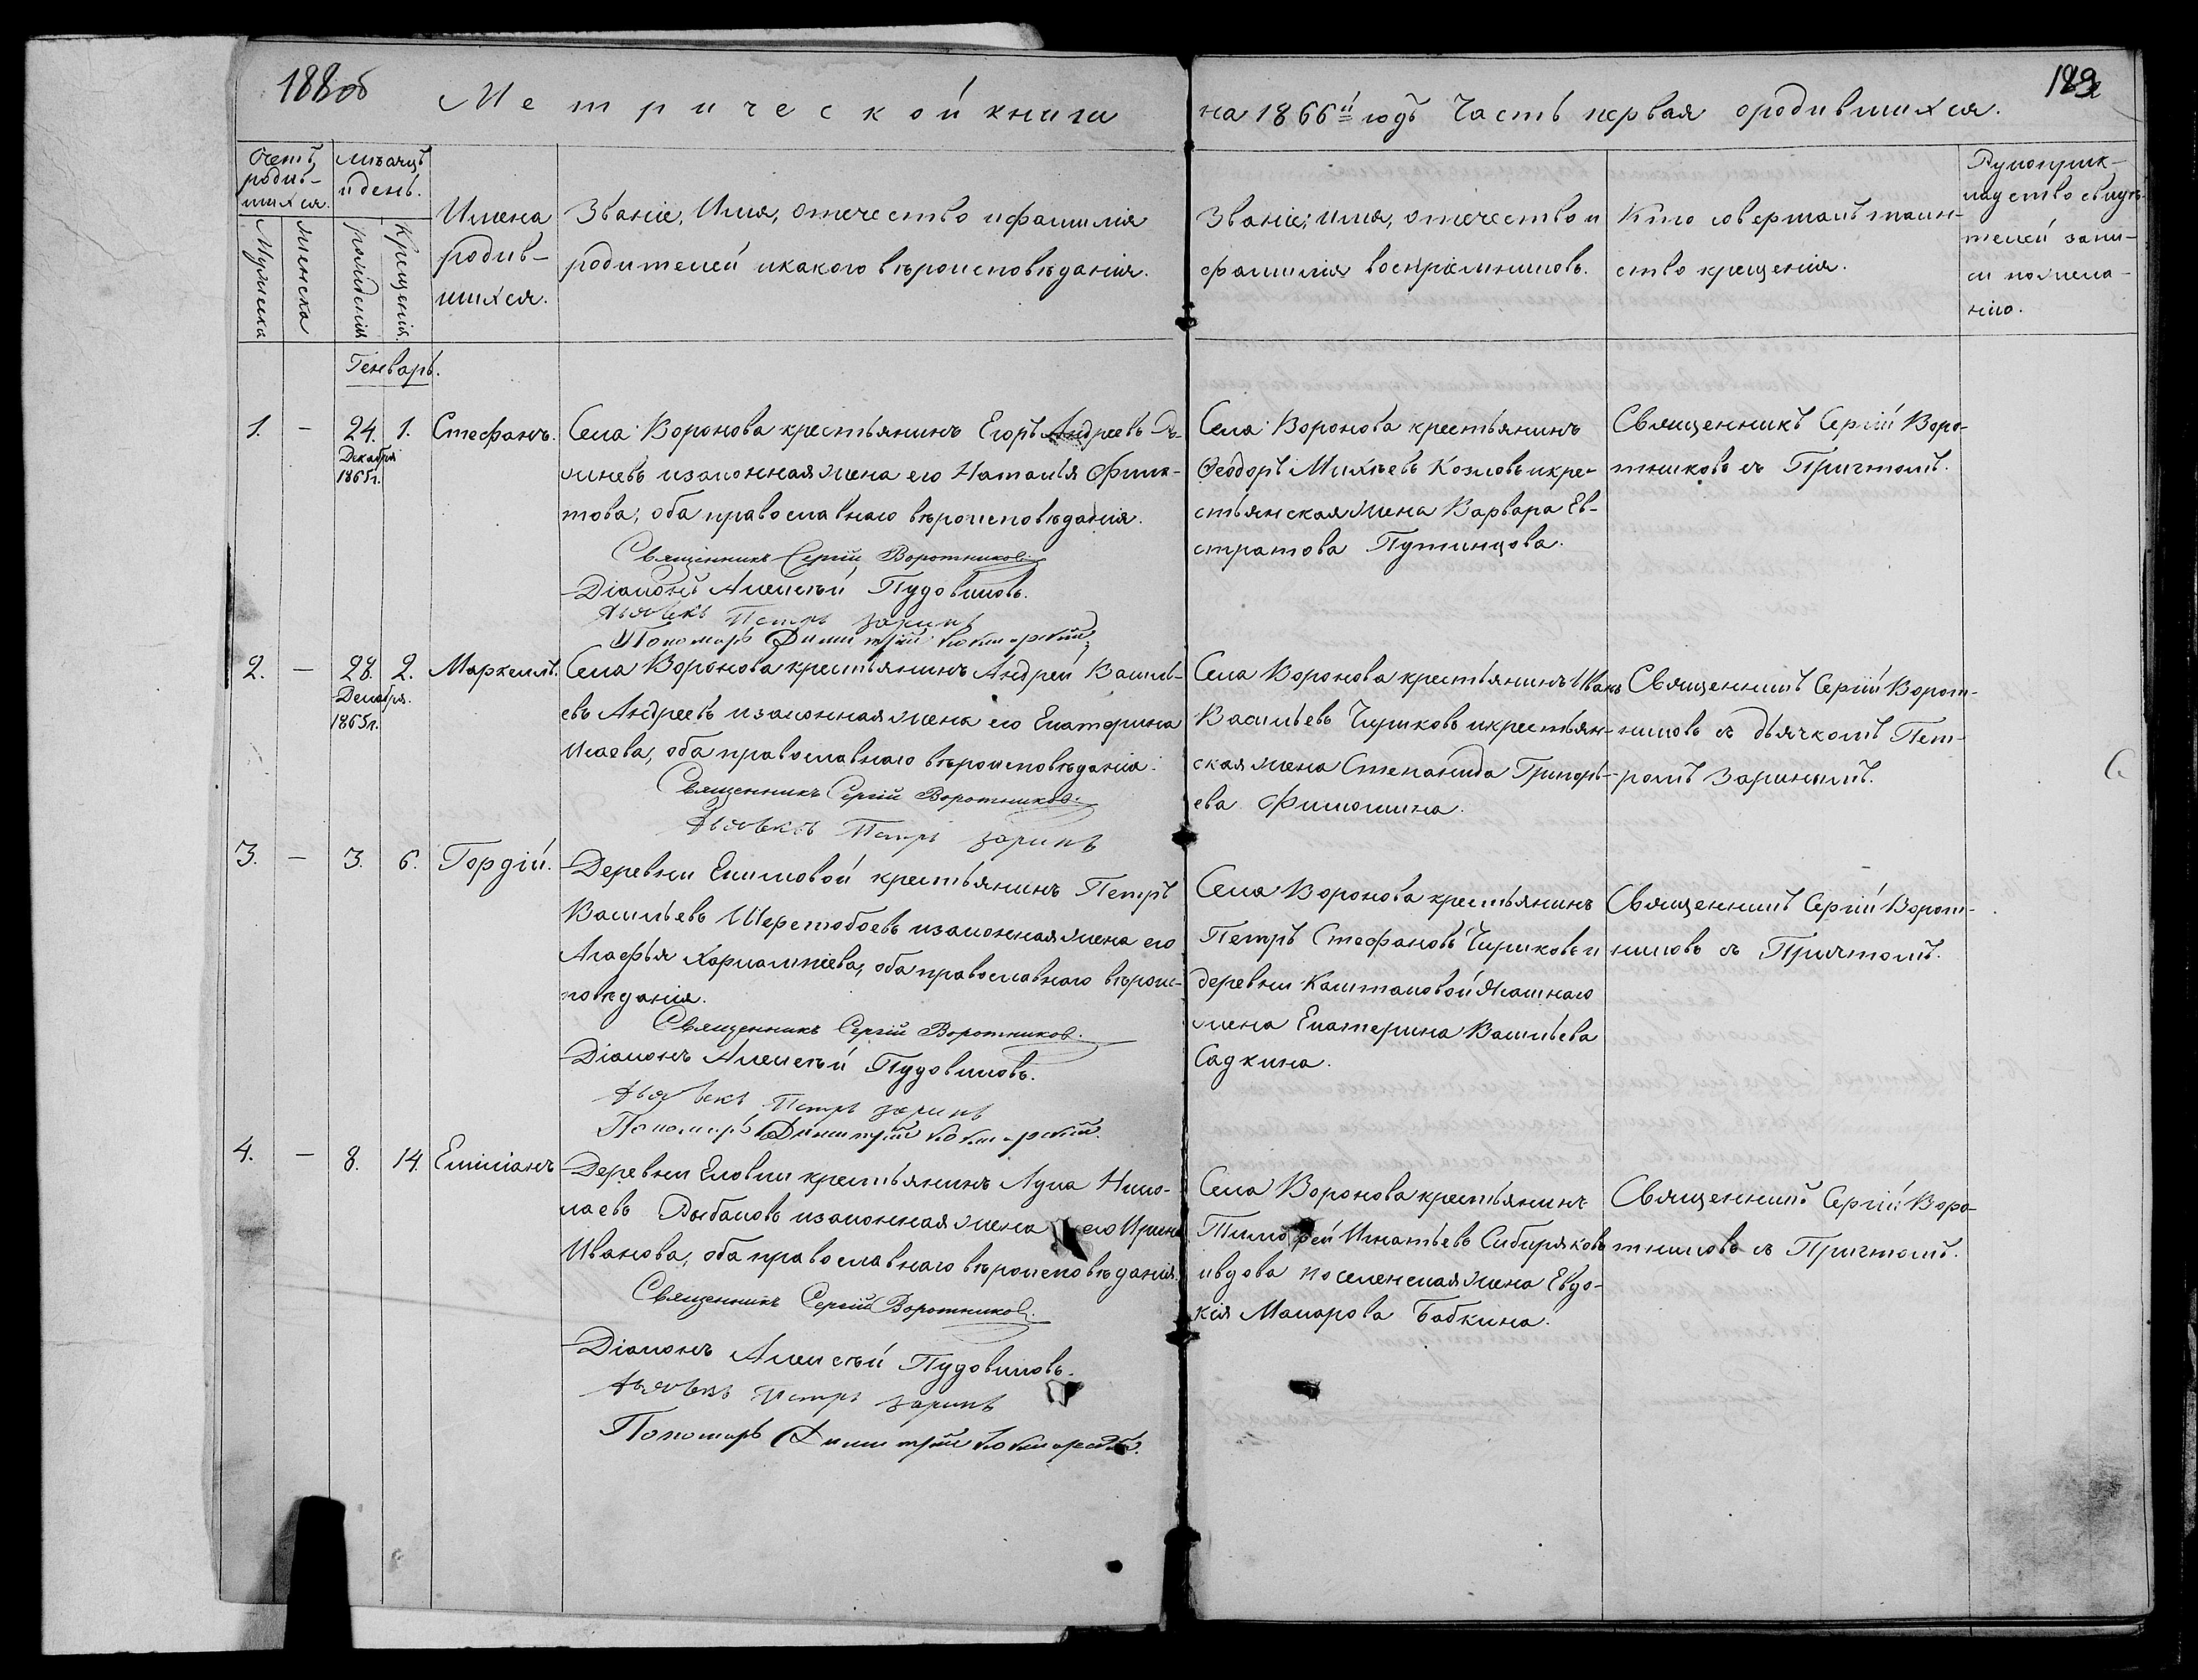 188об
Метрической книги
на 1866й годъ Часть первая о родившихся.
189
Счетъ родив-
шихся.
Мужеска
женска
мѣсяцъ
и день.
рожденія
Крещенія.
Имена
родив-
шихся.
Званіе, Имя, отечество и фамилія
родителей и какого вѣроисповѣданія.
Званіе, имя, отечество и
фамилія воспріемниковъ.
Кто совершалъ таин-
ство крещенія.
Рукоприк-
ладство свидѣ-
телей запи-
си по жела-
нію.
Генварь.
1. — 24. 1. Стефанъ.
Декабря
1865г.
Села Воронова крестьянинъ Егоръ Андреевъ
и законная жена его Наталья Филип-
това, оба православнаго вѣроисповѣданія.
Священникъ Сергій Воротниковъ.
Діаконъ Алексѣй Пудовиковъ.
Дьячекъ Петръ Заринъ
Пономарь Димитрій
Села Воронова крестьянинъ
Феодоръ Михѣевъ Козловъ и кре-
стьянская жена Варвара Ев-
стратова Путинцова.
Священникъ Сергій Воро-
тниковъ съ Причтомъ.
2. — 28. 2. Маркеллъ.
Декабря.
1865г.
Села Воронова крестьянинъ Андрей Василь-
евъ Андреевъ и законная жена его Екатерина
Исаева, оба православнаго вѣроисповѣданія.
Священникъ Сергій Воротниковъ.
Дьячекъ Петръ Заринъ
Села Воронова крестьянинъ Иванъ
Васильевъ Чириковъ и крестьян-
ская жена Степанида Григорь-
ева Филюшина.
Священникъ Сергій Ворот-
никовъ съ дьячкомъ Пет-
ромъ Заринымъ.
3. — 3. 6. Гордій.
Деревни Екимовой крестьянинъ Петръ
Васильевъ Шерстобоевъ и законная жена его
Агафья Харлампіева, оба православнаго вѣроис-
повѣданія.
Священникъ Сергій Воротниковъ.
Діаконъ Алексѣй Пудовиковъ.
Дьячекъ Петръ Заринъ
Пономарь Димитрій
Села Воронова крестьянинъ
Петръ Стефановъ Чириковъ и
деревни Каштаковой Ясашнаго
жена Екатерина Васильева
Садкина.
Священникъ Сергій Ворот-
никовъ съ Причтомъ.
4. — 8. 14. Емиліанъ
Деревни Еловки крестьянинъ Лука Нико-
лаевъ Рыбаковъ и законная жена его Ирина
Иванова, оба православнаго вѣроисповѣданія.
Священникъ Сергій Воротниковъ.
Діаконъ Алексѣй Пудовиковъ.
Дьячекъ Петръ Заринъ
Пономарь Димитрій
Села Воронова крестьянинъ
Тимофей Игнатьевъ Сибиряковъ
и вдова поселенская жена Евдо-
кія Макарова Бабкина.
Священникъ Сергій Воро-
тниковъ съ Причтомъ.